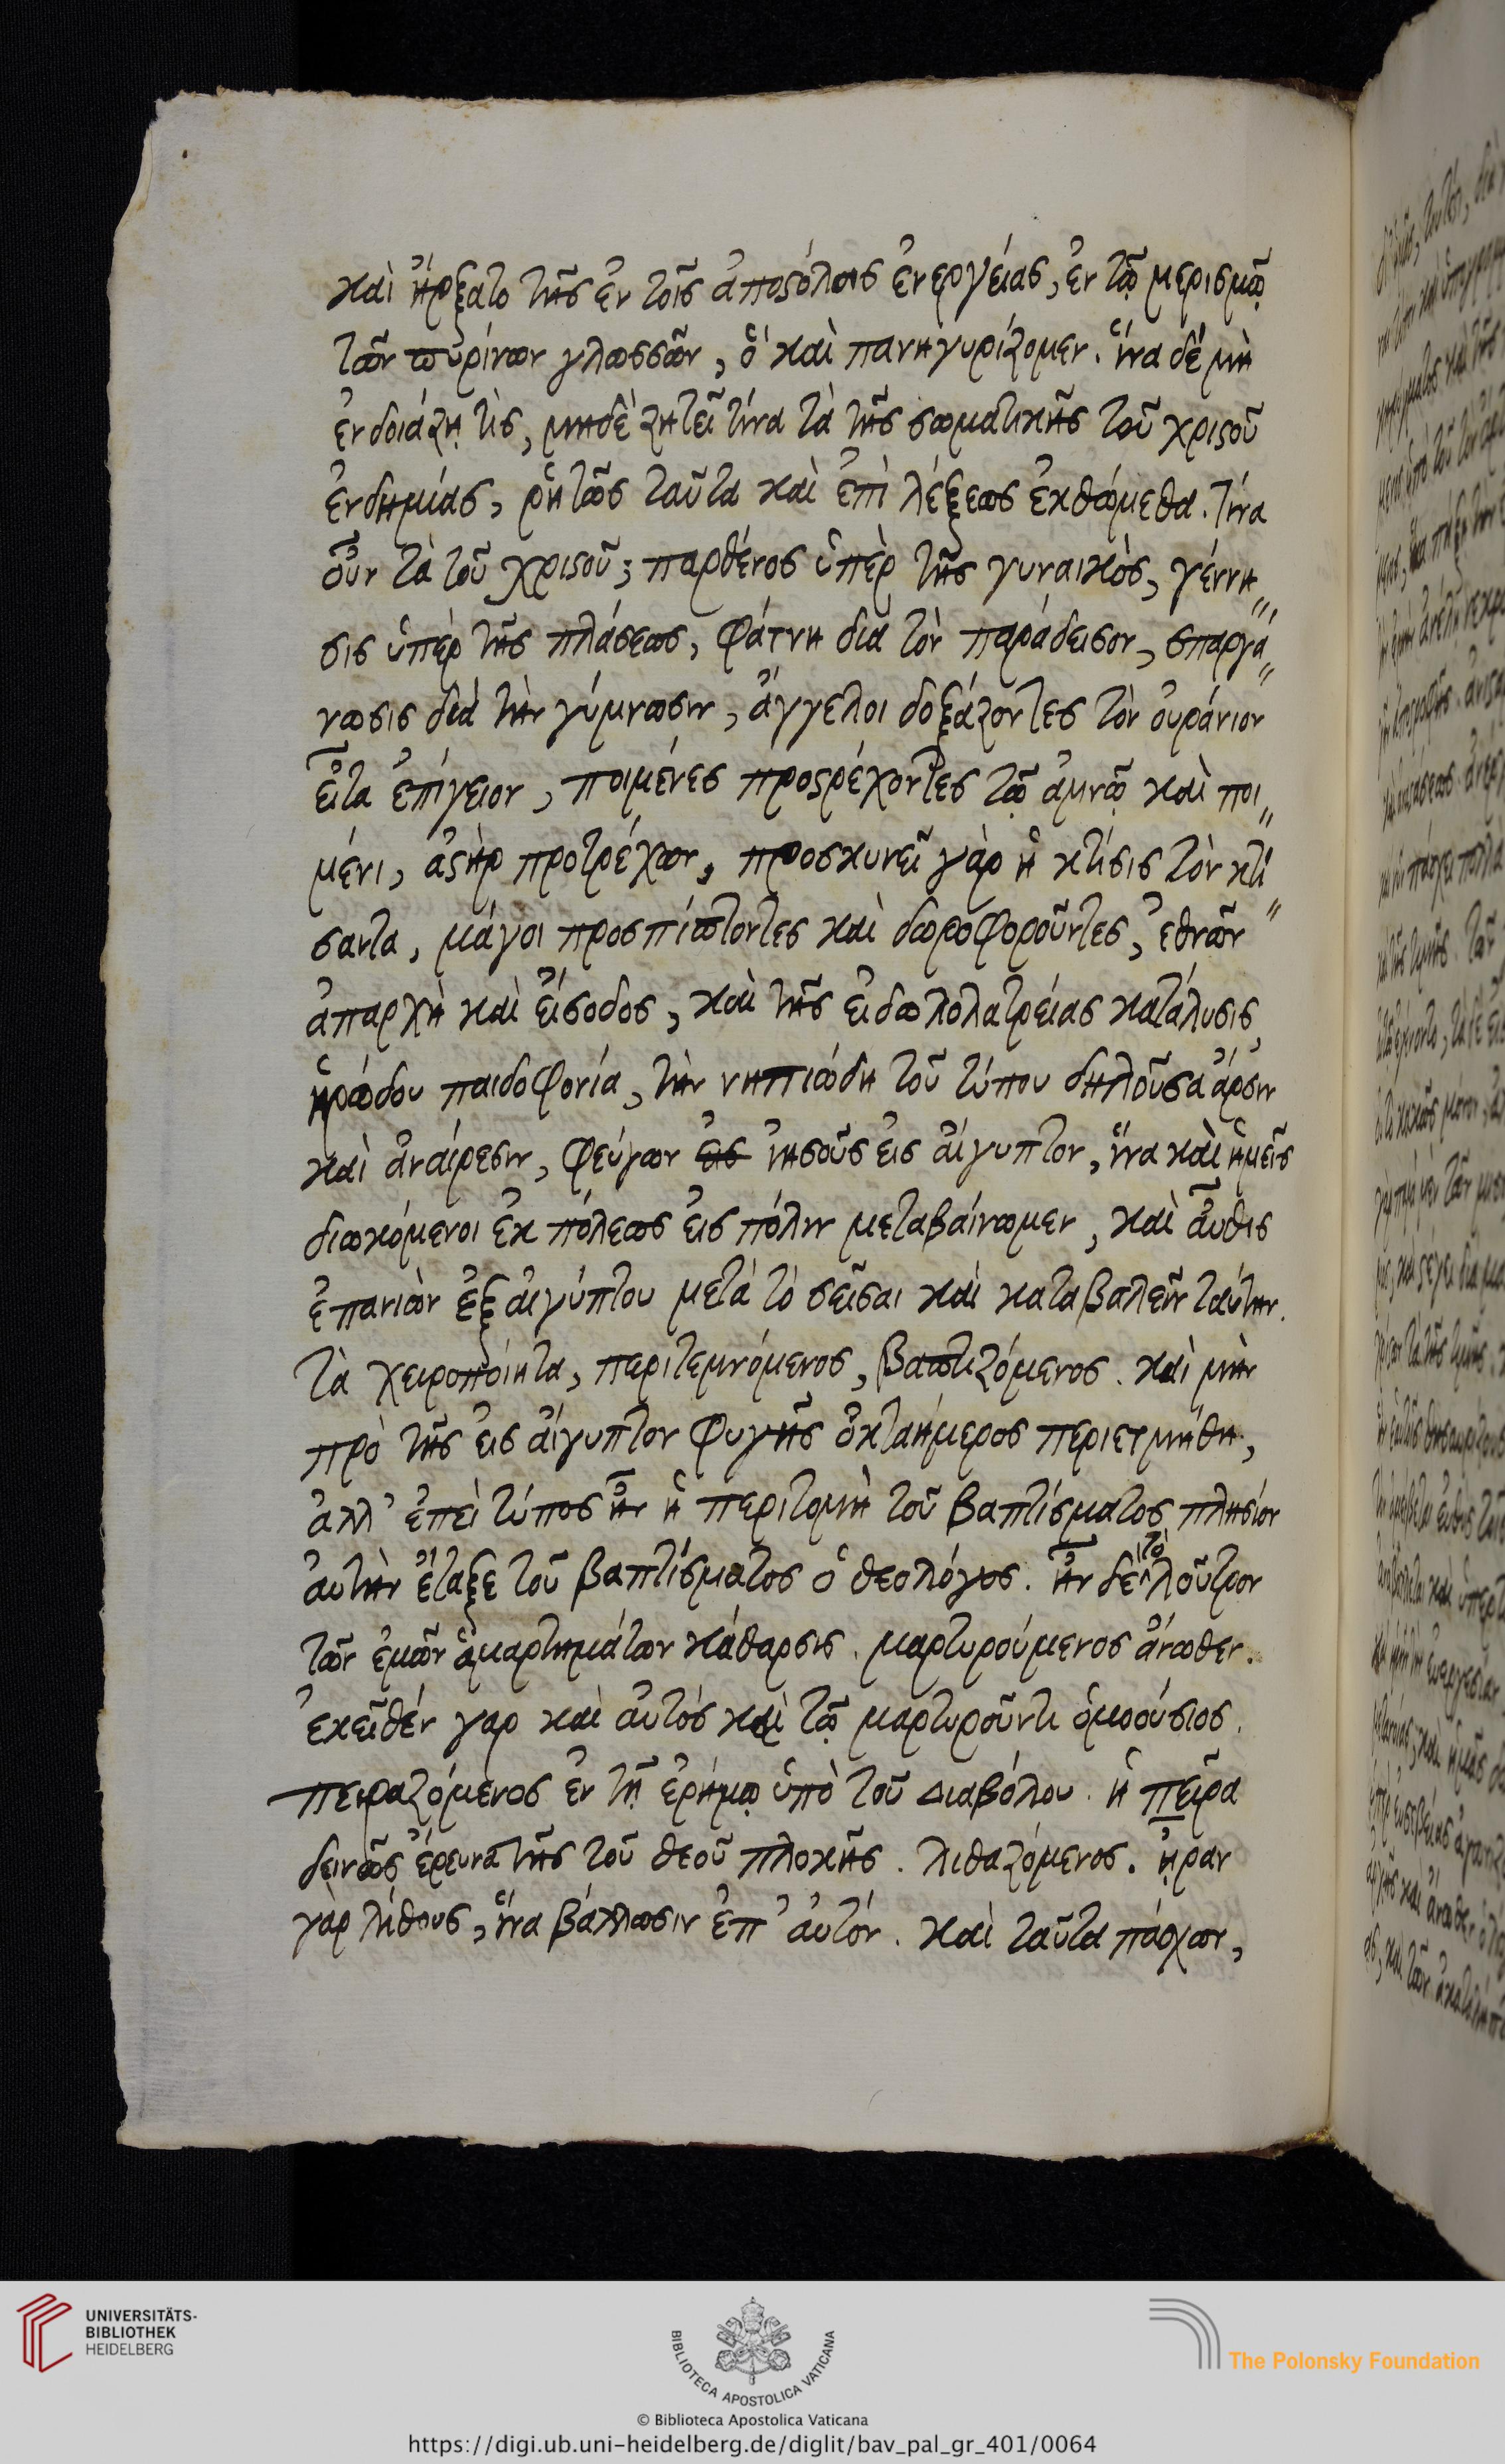 καὶ ἤρξατο τῆς ἐν τοῖς ἀποστόλοις ἐνεργείας, ἐν τῷ μερισμῷ
τῶν πυρίνων γλωσσῶν, ὃ καὶ πανηγυρίζομεν. ἵνα δὲ μὴ
ἐνδοιάζῃ τὶς, μηδὲ ζητεῖ τίνα τὰ τῆς σωματικῆς τοῦ χριστοῦ
ἐνδημίας, ῥητῶς ταῦτα καὶ ἐπὶ λέξεως ἐκθώμεθα. τίνα
οὖν τὰ τοῦ χριστοῦ; παρθένος ὑπὲρ τῆς γυναικὸς, γέννη„
σις ὑπὲρ τῆς πλάσεως, φάτνη διὰ τὸν παράδεισον, σπαργά„
νωσις διὰ τὴν γύμνωσιν, ἄγγελοι δοξάζοντες τὸν οὐράνιον
εἶτα ἐπίγειον, ποιμένες προστρέχοντες τῷ ἀμνῷ καὶ ποι„
μένι, ἀστὴρ προτρέχων, προσκυνεῖ γὰρ ἡ κτίσις τὸν κτί„
σαντα, μάγοι προσπίπτοντες καὶ δωροφοροῦντες, ἐθνῶν
ἀπαρχὴ καὶ εἴσοδος, καὶ τῆς εἰδωλολατρείας κατάλυσις,
ἡρώδου παιδοφονία, τὴν νηπιώδη τοῦ τύπου δηλοῦσα ἄρσιν
καὶ ἀναίρεσιν, φεύγων εἰς ἰησοῦς εἰς αἴγυπτον, ἵνα καὶ ἡμεῖς
διωκόμενοι ἐκ πόλεως εἰς πόλιν μεταβαίνωμεν, καὶ αὖθις
ἐπανιὼν ἐξ αἰγύπτου μετὰ τὸ σεῖσαι καὶ καταβαλεῖν ταύτην.
τὰ χειροποίητα, περιτεμνόμενος, βαπτιζόμενος. καὶ μὴν
πρὸ τῆς εἰς αἴγυπτον φυγῆς ὀκταήμερος περιετμήθη,
ἀλλ' ἐπεὶ τύπος ἦν ἡ περιτομὴ τοῦ βαπτίσματος πλησίον
αὐτὴν ἔταξε τοῦ βαπτίσματος ὁ θεολόγος. ἦν δὲ τὸ λοῦτρον
τῶν ἐμῶν ἁμαρτημάτων κάθαρσις. μαρτυρούμενος ἄνωθεν.
ἐκεῖθέν γαρ καὶ αὐτός καὶ τῷ μαρτυροῦντι ὁμοούσιος.
πειραζόμενος ἐν τῇ ἐρήμῳ ὑπὸ τοῦ διαβόλου. ἡ πεῖρα
δεινῶς ἐρευνᾶ τῆς τοῦ θεοῦ πλοκῆς. λιθαζόμενος. ᾖραν
γὰρ λίθους, ἵνα βάλλωσιν ἐπ' αὐτόν. καὶ ταῦτα πάσχων,
UNIVERSITÄTS-
BIBLIOTHEK
HEIDELBERG
BIBLIOTECA APOSTOLICA VATICANA
The Polonsky Foundation
© Biblioteca Apostolica Vaticana
https://digi.ub.uni-heidelberg.de/diglit/bav_pal_gr_401/0064